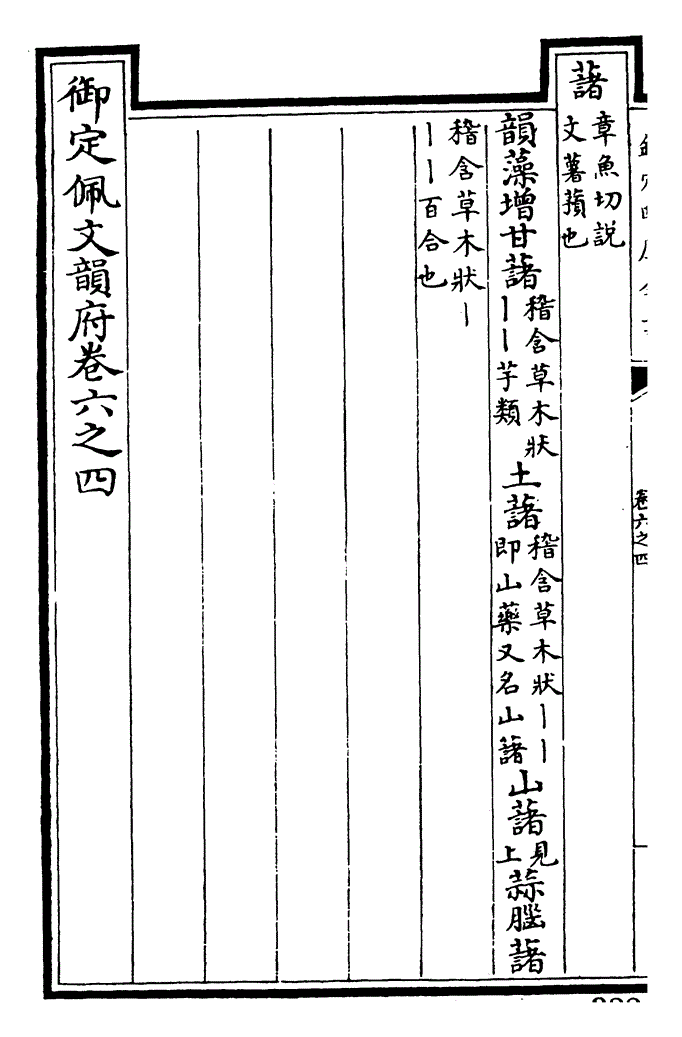 藷
章魚切説
文薯蕷也
韻藻增甘藷
稽含草木狀
丨丨芋類
土藷
稽含草木狀丨丨
即山藥又名山藷
山藷
見
上
蒜腦藷
稽含草木狀丨
丨丨百合也
御定佩文韻府卷六之四
卷六之四